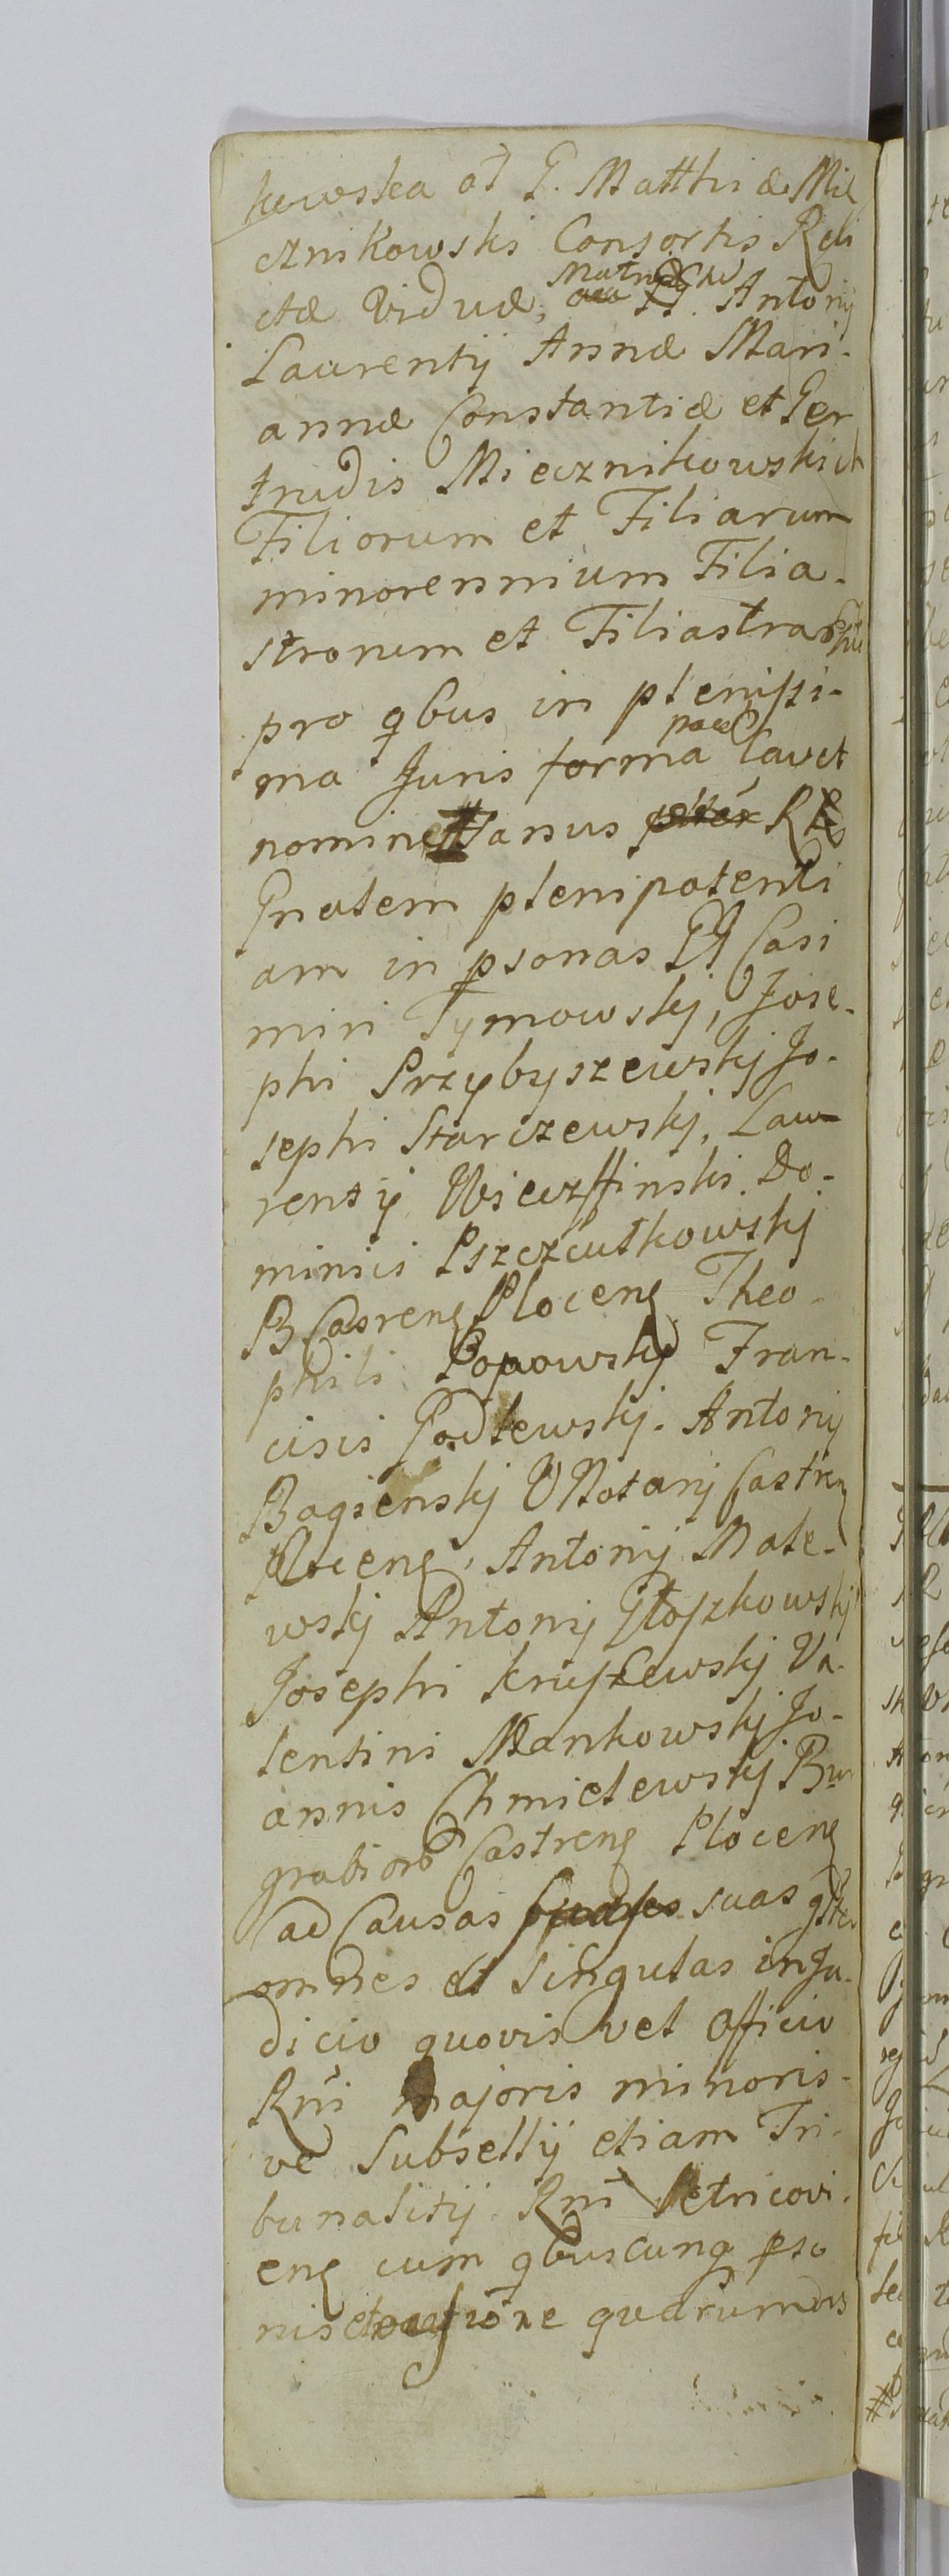 kowska ol G. Matthiæ Mie
cznikowski Consortis Reli
ctæ Viduæ, Matris GG. Antonij
Laurentij Annæ Mari-
annæ Constantiæ et Ger
trudis Miecznikowskich
Filiorum et Filiarum
minorennium Filia-
strorum et Filiastrarum
pro qbus in plenissi-
ma Juris forma cavet
nomine
Gnalem plenipotenti
am in psonas GG Casi
miri Tymowskj, Jose-
phi Przybyszewskj Jo-
sephi Starczewskj, Lau
rentij Wieczffinski. Do-
minici Pszczułkowskj
B Castreng Ploceng Theo-
phili Popowskj Fran-
cisci Godlewskj. Antonij
Bagienskj VNotarij Castreng
Ploceng, Antonij Male-
wskj Antonij Głoszkowskj
Josephi Kryszewskj Va-
lentini Mankowskj Jo-
annis Chmielewskj Bur
grabior Castreng Ploceng
ad Causas suas
omnes et singulas in Ju-
dicio quovis vel Officio
Rni majoris minoris-
ve Subsellij etiam Tri-
bunalitij Rni Petricovi-
eng cum qbuscunq pso
nis quarumvis